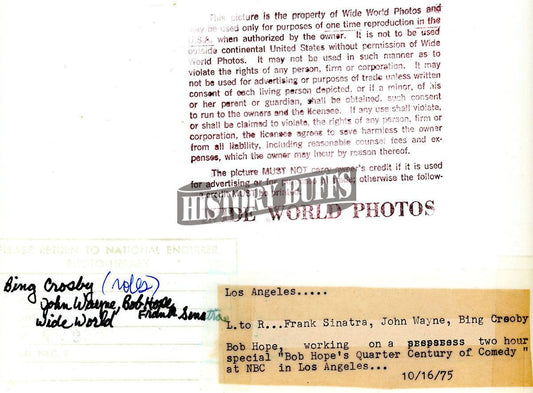 This picture is the property of Wide World Photos and
may be used only for purposes of one time reproduction in the
U.S.A. when authorized by the owner. It is not to be used
outside continental United States without permission of Wide
World Photos. It may not be used in such manner as to
violate the rights of any person, firm or corporation. It may
not be used for advertising or purposes of trade unless written
consent of each living person depicted, or if a minor, of his
or her parent or guardian, shall be obtained, such consent
to run to the owners and the licensee. If any use shall violate,
or shall be claimed to violate, the rights of any person, firm or
corporation, the licensee agrees to save harmless the owner
from all liability, including reasonable counsel fees and ex-
penses, which the owner may incur by reason thereof.
The picture MUST NOT carry owner's credit if it is used
for advertising or for otherwise the follow-
credit MUST be
HISTORY BUFFS
WIDE WORLD PHOTOS
PLEASE RETURN TO NATIONAL ENQUIRER
Bing Crosby (roles)
John Wayne, Bob Hope,
Frank Sinatra
Wide World
Los Angeles.....
L.to R...Frank Sinatra, John Wayne, Bing Crosby
Bob Hope, working on a two hour
special "Bob Hope's Quarter Century of Comedy "
at NBC in Los Angeles...
10/16/75